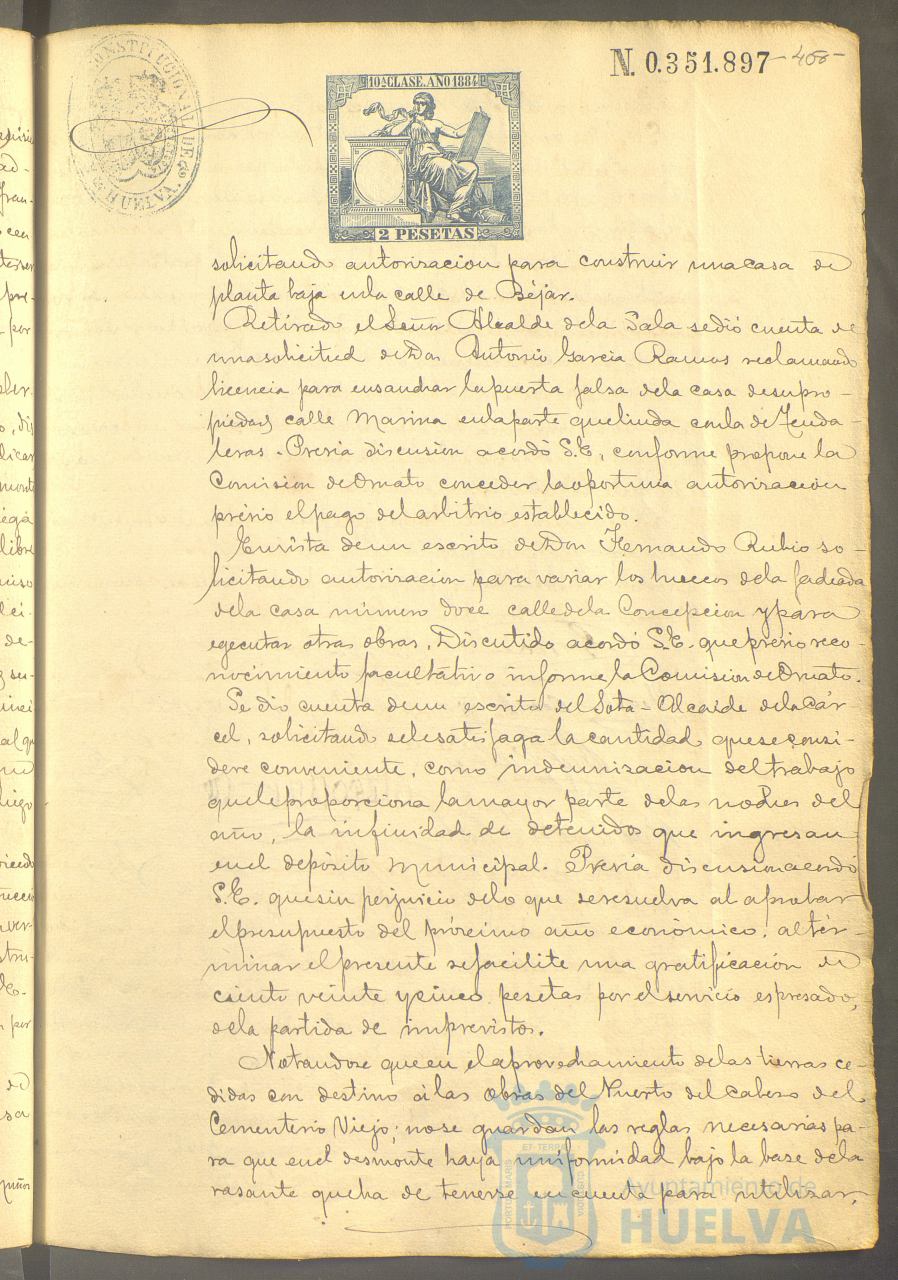 CONSTITUCIONAL DE
HUELVA
N. 0.351.897
10ª CLASE. AÑO 1884
2 PESETAS
solicitando autorizacion para construir una casa de
planta baja en la calle de Béjar.
Retirado el Señor Alcalde de la Sala se dió cuenta de
una solicitud de Don Antonio Garcia Ramos reclamando
licencia para ensanchar la puerta falsa de la casa de su pro-
piedad calle Marina en la parte que linda con la de Tenda-
leras. Previa discusion acordó S.E. conforme propone la
Comision de Ornato conceder la oportuna autorizacion
prévio el pago del arbitrio establecido.
En vista de un escrito de Don Fernando Rubio so-
licitando autorizacion para variar los huecos de la fachada
de la casa número doce calle de la Concepcion y para
egecutar otras obras, Discutido acordó S.E. que previo reco-
nocimiento facultativo informe la Comision de Ornato.
Se dio cuenta de un escrito del Sota-Alcaide de la Cár-
cel, solicitando se le satisfaga la cantidad que se consi-
dere conveniente, como indemnizacion del trabajo
que le proporciona la mayor parte de las noches del
año, la infinidad de detenidos que ingresan
en el depósito Municipal. Prévia discusion acordó
S.E. que sin perjuicio de lo que se resuelva al aprobar
el presupuesto del próximo año económico, al tér-
minar el presente se facilite una gratificacion de
ciento veinte y cinco pesetas por el servicio espresado,
de la partida de imprevistos.
Notandose que en el aprovechamiento de las tierras ce-
didas con destino á las obras del Puerto del cabezo del
Cementerio Viejo, no se guardan las reglas necesarias pa-
ra que en el desmonte haya uniformidad bajo la base de la
rasante que ha de tenerse en cuenta para utilizar,
Ayuntamiento de
HUELVA